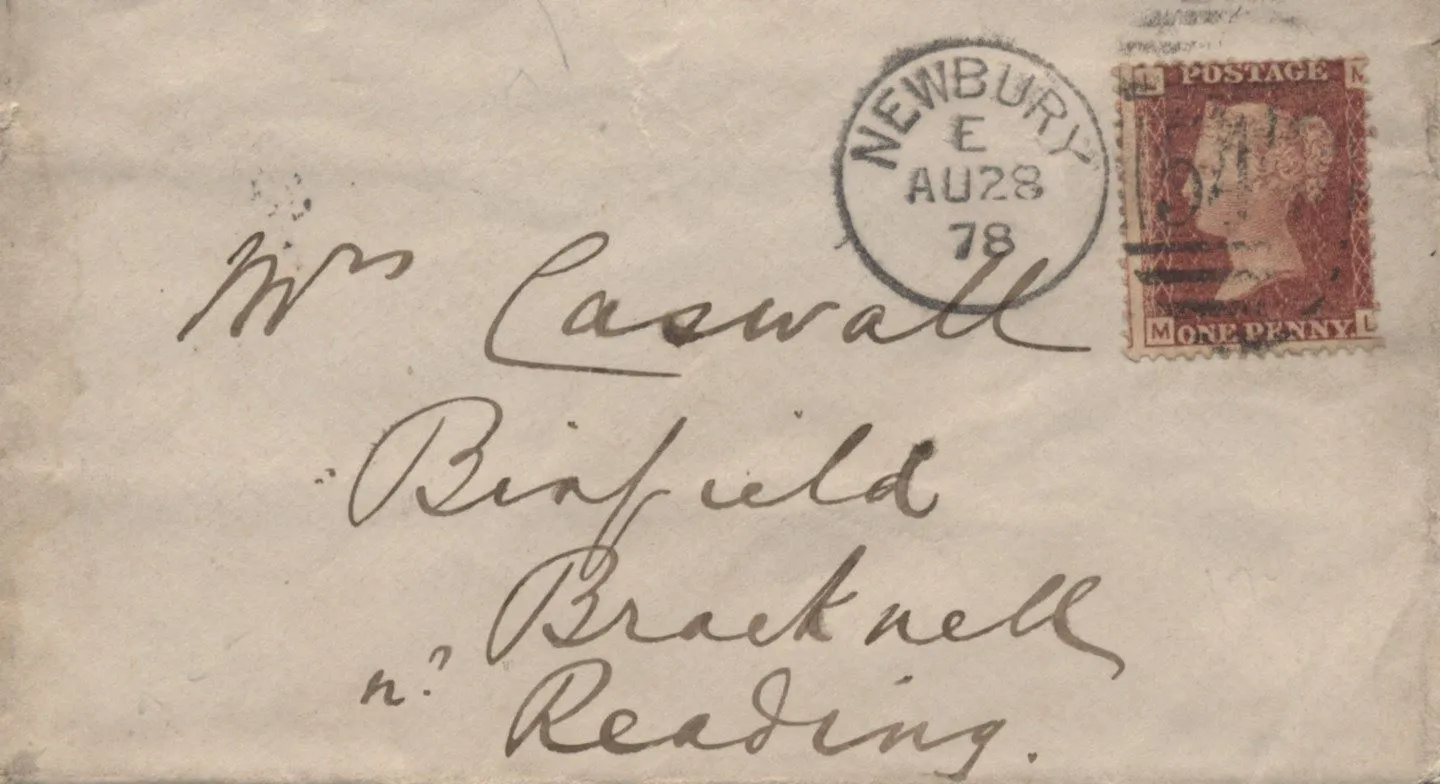 NEWBURY
E
AU28
78
POSTAGE
M L
ONE PENNY
Mrs Caswall
Binfield
Bracknell
nr Reading.